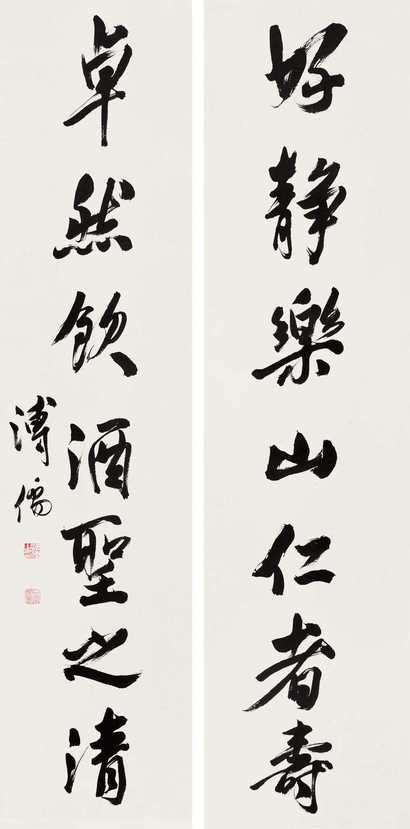 好靜樂山仁者壽
卓然飲酒聖之清
溥儒